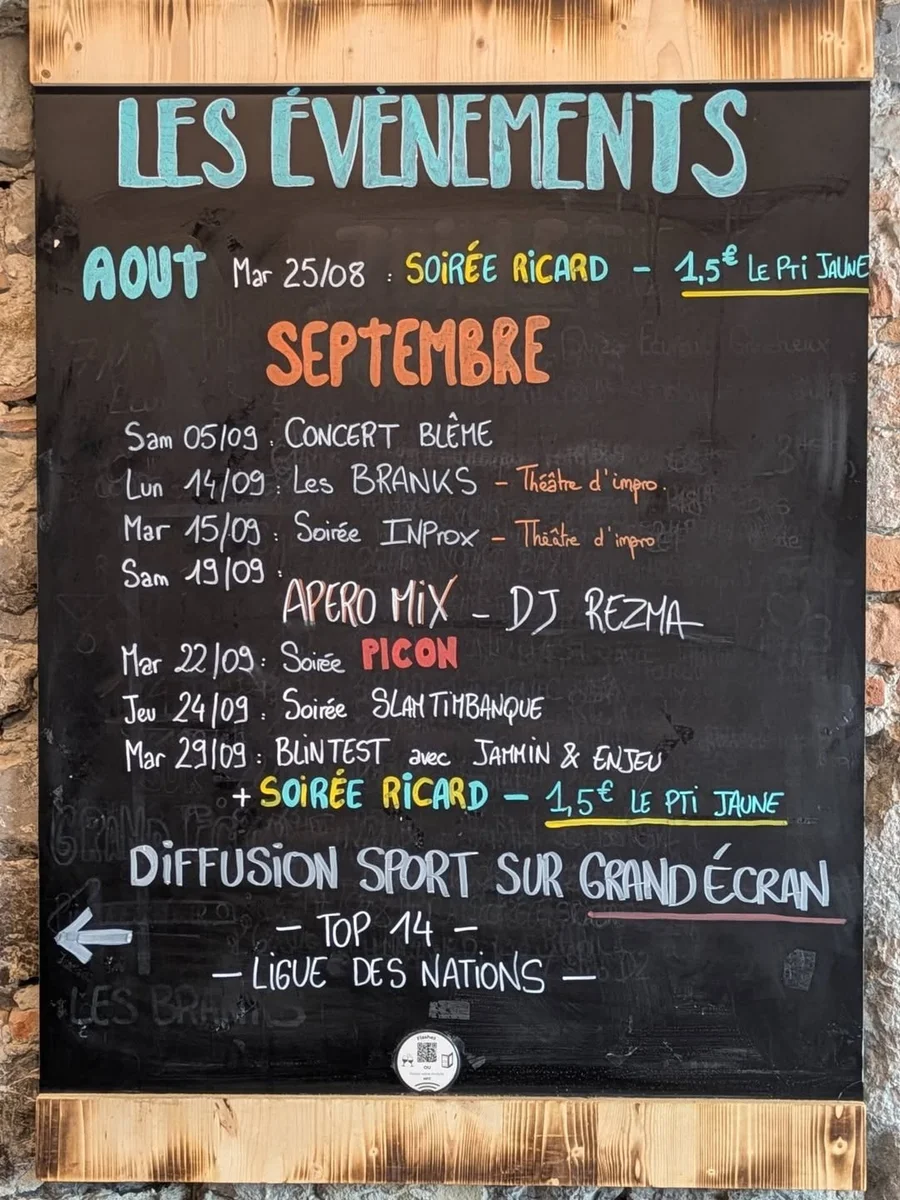 LES ÉVÈNEMENTS
AOUT Mar 25/08 : SOIRÉE RICARD - 1,5€ LE PTI JAUNE
SEPTEMBRE
Sam 05/09 : CONCERT BLÊME
Lun 14/09 : Les BRANKS - Théâtre d'impro.
Mar 15/09 : Soirée INProx - Théâtre d'impro
Sam 19/09 :
APERO MiX - DJ REZMA
Mar 22/09 : Soirée PICON
Jeu 24/09 : Soirée SLAM TiMBANQUE
Mar 29/09 : BLiNTEST avec JAMMiN & ENJEU
+ SOIRÉE RICARD - 1,5€ LE PTI JAUNE
DiFFUSION SPORT SUR GRAND ÉCRAN
- TOP 14 -
- LiGUE DES NATIONS -
LES BRANKS
Flashez
OU